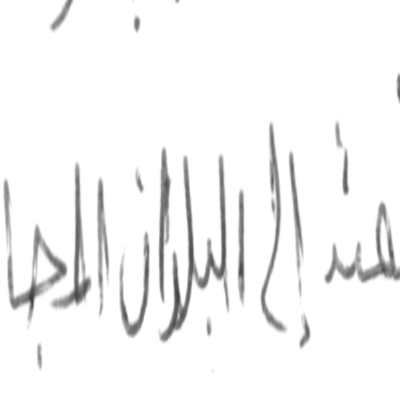 هند إلى البلدان المجا